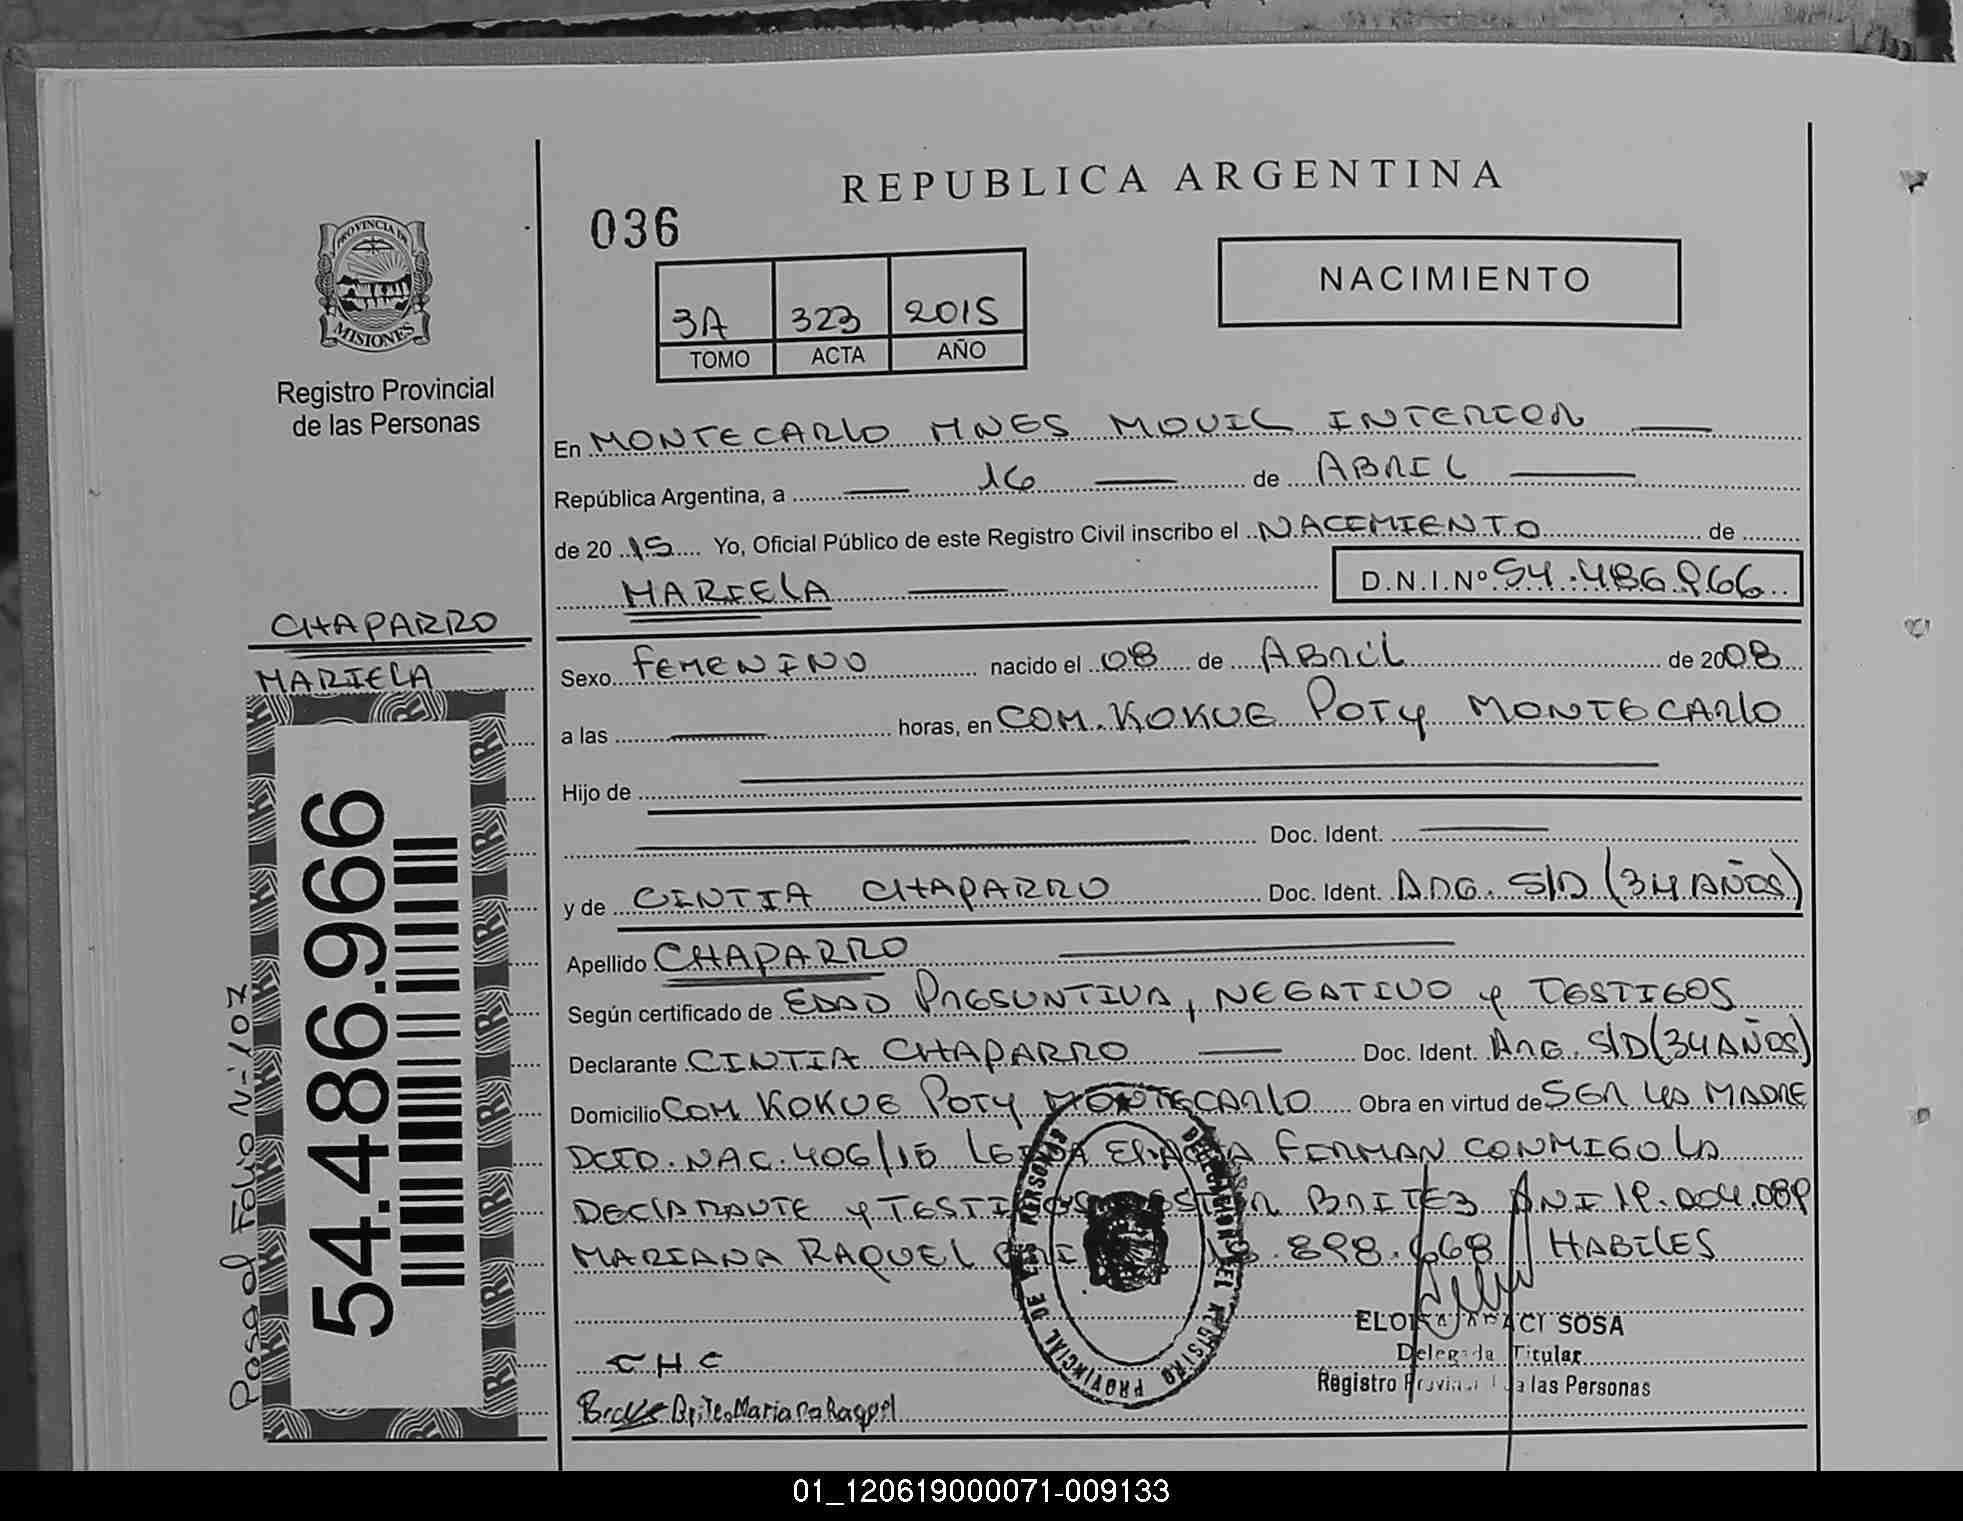 REPUBLICA ARGENTINA
036
NACIMIENTO
3A 323 2015
TOMO ACTA AÑO
PROVINCIA DE
MISIONES
Registro Provincial
de las Personas
En MONTECARLO MNES MOVIL INTERIOR
República Argentina, a 16 de ABRIL
de 2015 Yo, Oficial Público de este Registro Civil inscribo el NACIMIENTO de
MARIELA D.N.I.Nº 54.486.966
CHAPARRO
MARIELA
54.486.966
Pasa al Folio N-107
Sexo FEMENINO nacido el 08 de ABRIL de 2008
a las horas, en COM. KOKUE POTY MONTECARLO
Hijo de
Doc. Ident.
y de CINTIA CHAPARRO Doc. Ident. ARG. S/D (34 AÑOS)
Apellido CHAPARRO
Según certificado de EDAD PRESUNTIVA, NEGATIVO y TESTIGOS
Declarante CINTIA CHAPARRO Doc. Ident. ARG. S/D (34 AÑOS)
Domicilio COM KOKUE POTY MONTECARLO Obra en virtud de SER LA MADRE
DCTO. NAC. 406/15 LEIDA EL ACTA FIRMAN CONMIGO LA
DECLARANTE y TESTIGOS BRITEZ DNI 19.004.089
MARIANA RAQUEL 898.668 HABILES
DELEGACION DEL REGISTRO PROVINCIAL DE LAS PERSONAS
ELOISA ARACI SOSA
Delegada Titular
Registro Provincial de las Personas
C H C
Mariana Raquel
01_120619000071-009133